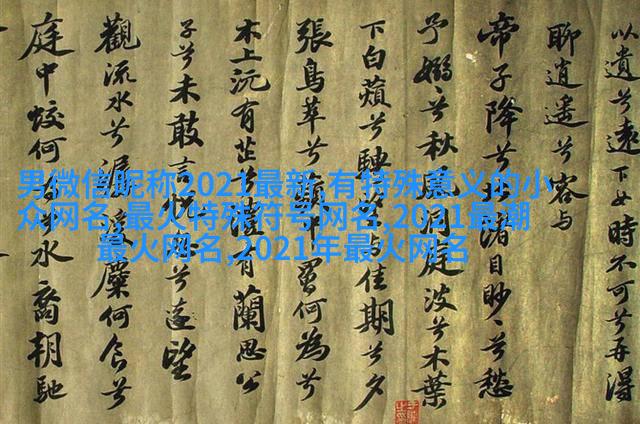 以遺兮遠下女時不可兮再得
聊逍遙兮容与
帝子降兮北渚目眇〻兮愁
予嫋〻兮秋風洞庭波兮木葉
下白蘋兮騁望与佳期兮夕
張鳥萃兮罾何為兮
木上沅有芷兮澧有蘭思公
子兮未敢言兮遠望
觀流水兮潺湲麋何食兮
庭中蛟何為兮水裔朝馳
男微信昵称2021最新,有特殊意义的小
众网名,最火特殊符号网名,2021最潮
最火网名,2021年最火网名